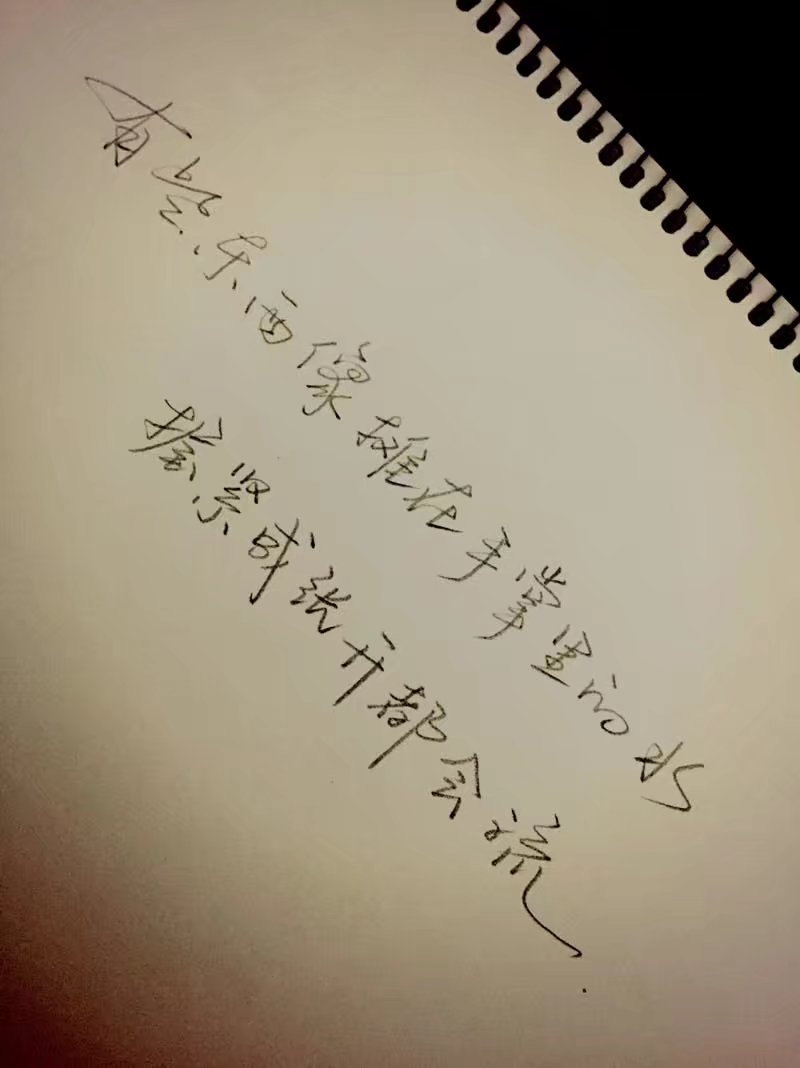 有些东西像摊在手掌里的水
握紧或张开都会流